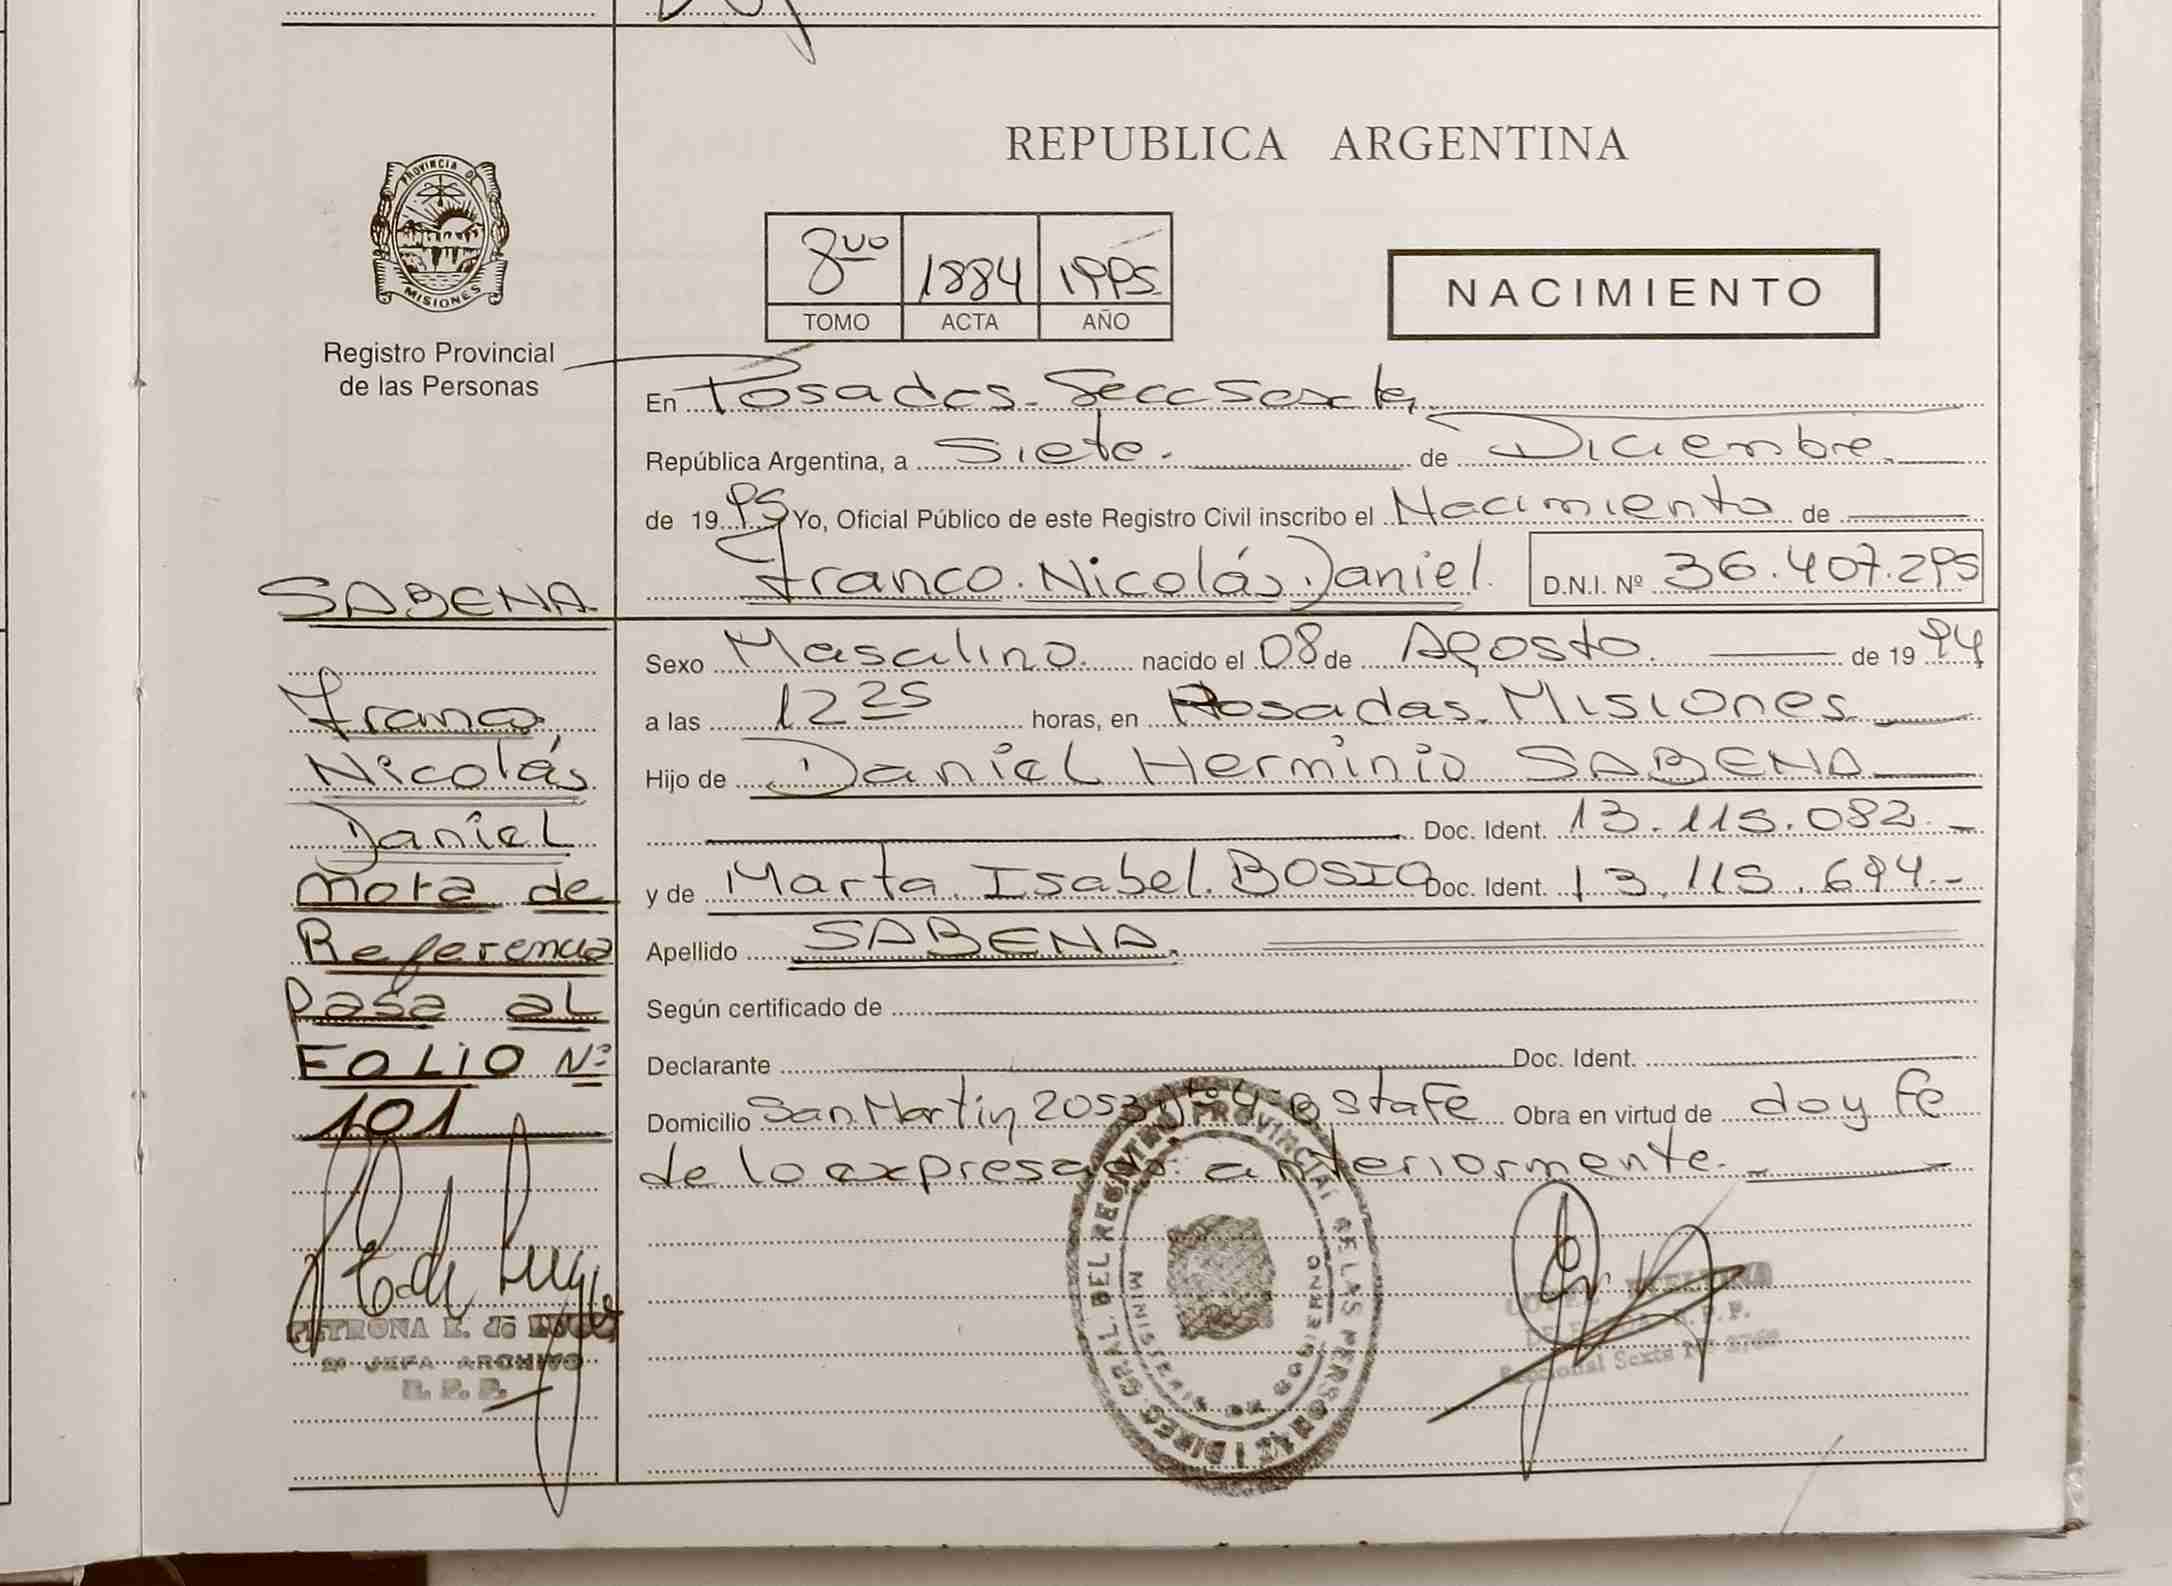 REPUBLICA ARGENTINA
PROVINCIA DE
MISIONES
Registro Provincial
de las Personas
8vo 1884 1995
TOMO ACTA AÑO
NACIMIENTO
En Posadas. Secc Sexta
República Argentina, a Siete. de Diciembre.
de 1995 Yo, Oficial Público de este Registro Civil inscribo el Nacimiento de
Franco. Nicolás Daniel. D.N.I. Nº 36.407.295
SABENA
Franco
Nicolás
Daniel
Nota de
Referencia
Pasa al
FOLIO Nº
101
PETRONA E. de
2º JEFA ARCHIVO
R. P. P.
Sexo Masculino. nacido el 08 de Agosto. de 1994
a las 12 25 horas, en Posadas. Misiones
Hijo de Daniel Herminio SABENA
Doc. Ident. 13.115.082.-
y de Marta. Isabel. BOSIO Doc. Ident. 13.115.694.-
Apellido SABENA.
Según certificado de
Declarante Doc. Ident.
Domicilio San Martin 2053 Dto 4-B Sta Fe Obra en virtud de doy fe
de lo expresado anteriormente.-
DIREC GRAL. DEL REGISTRO PROVINCIAL DE LAS PERSONAS
MINISTERIO DE GOBIERNO
Sexta